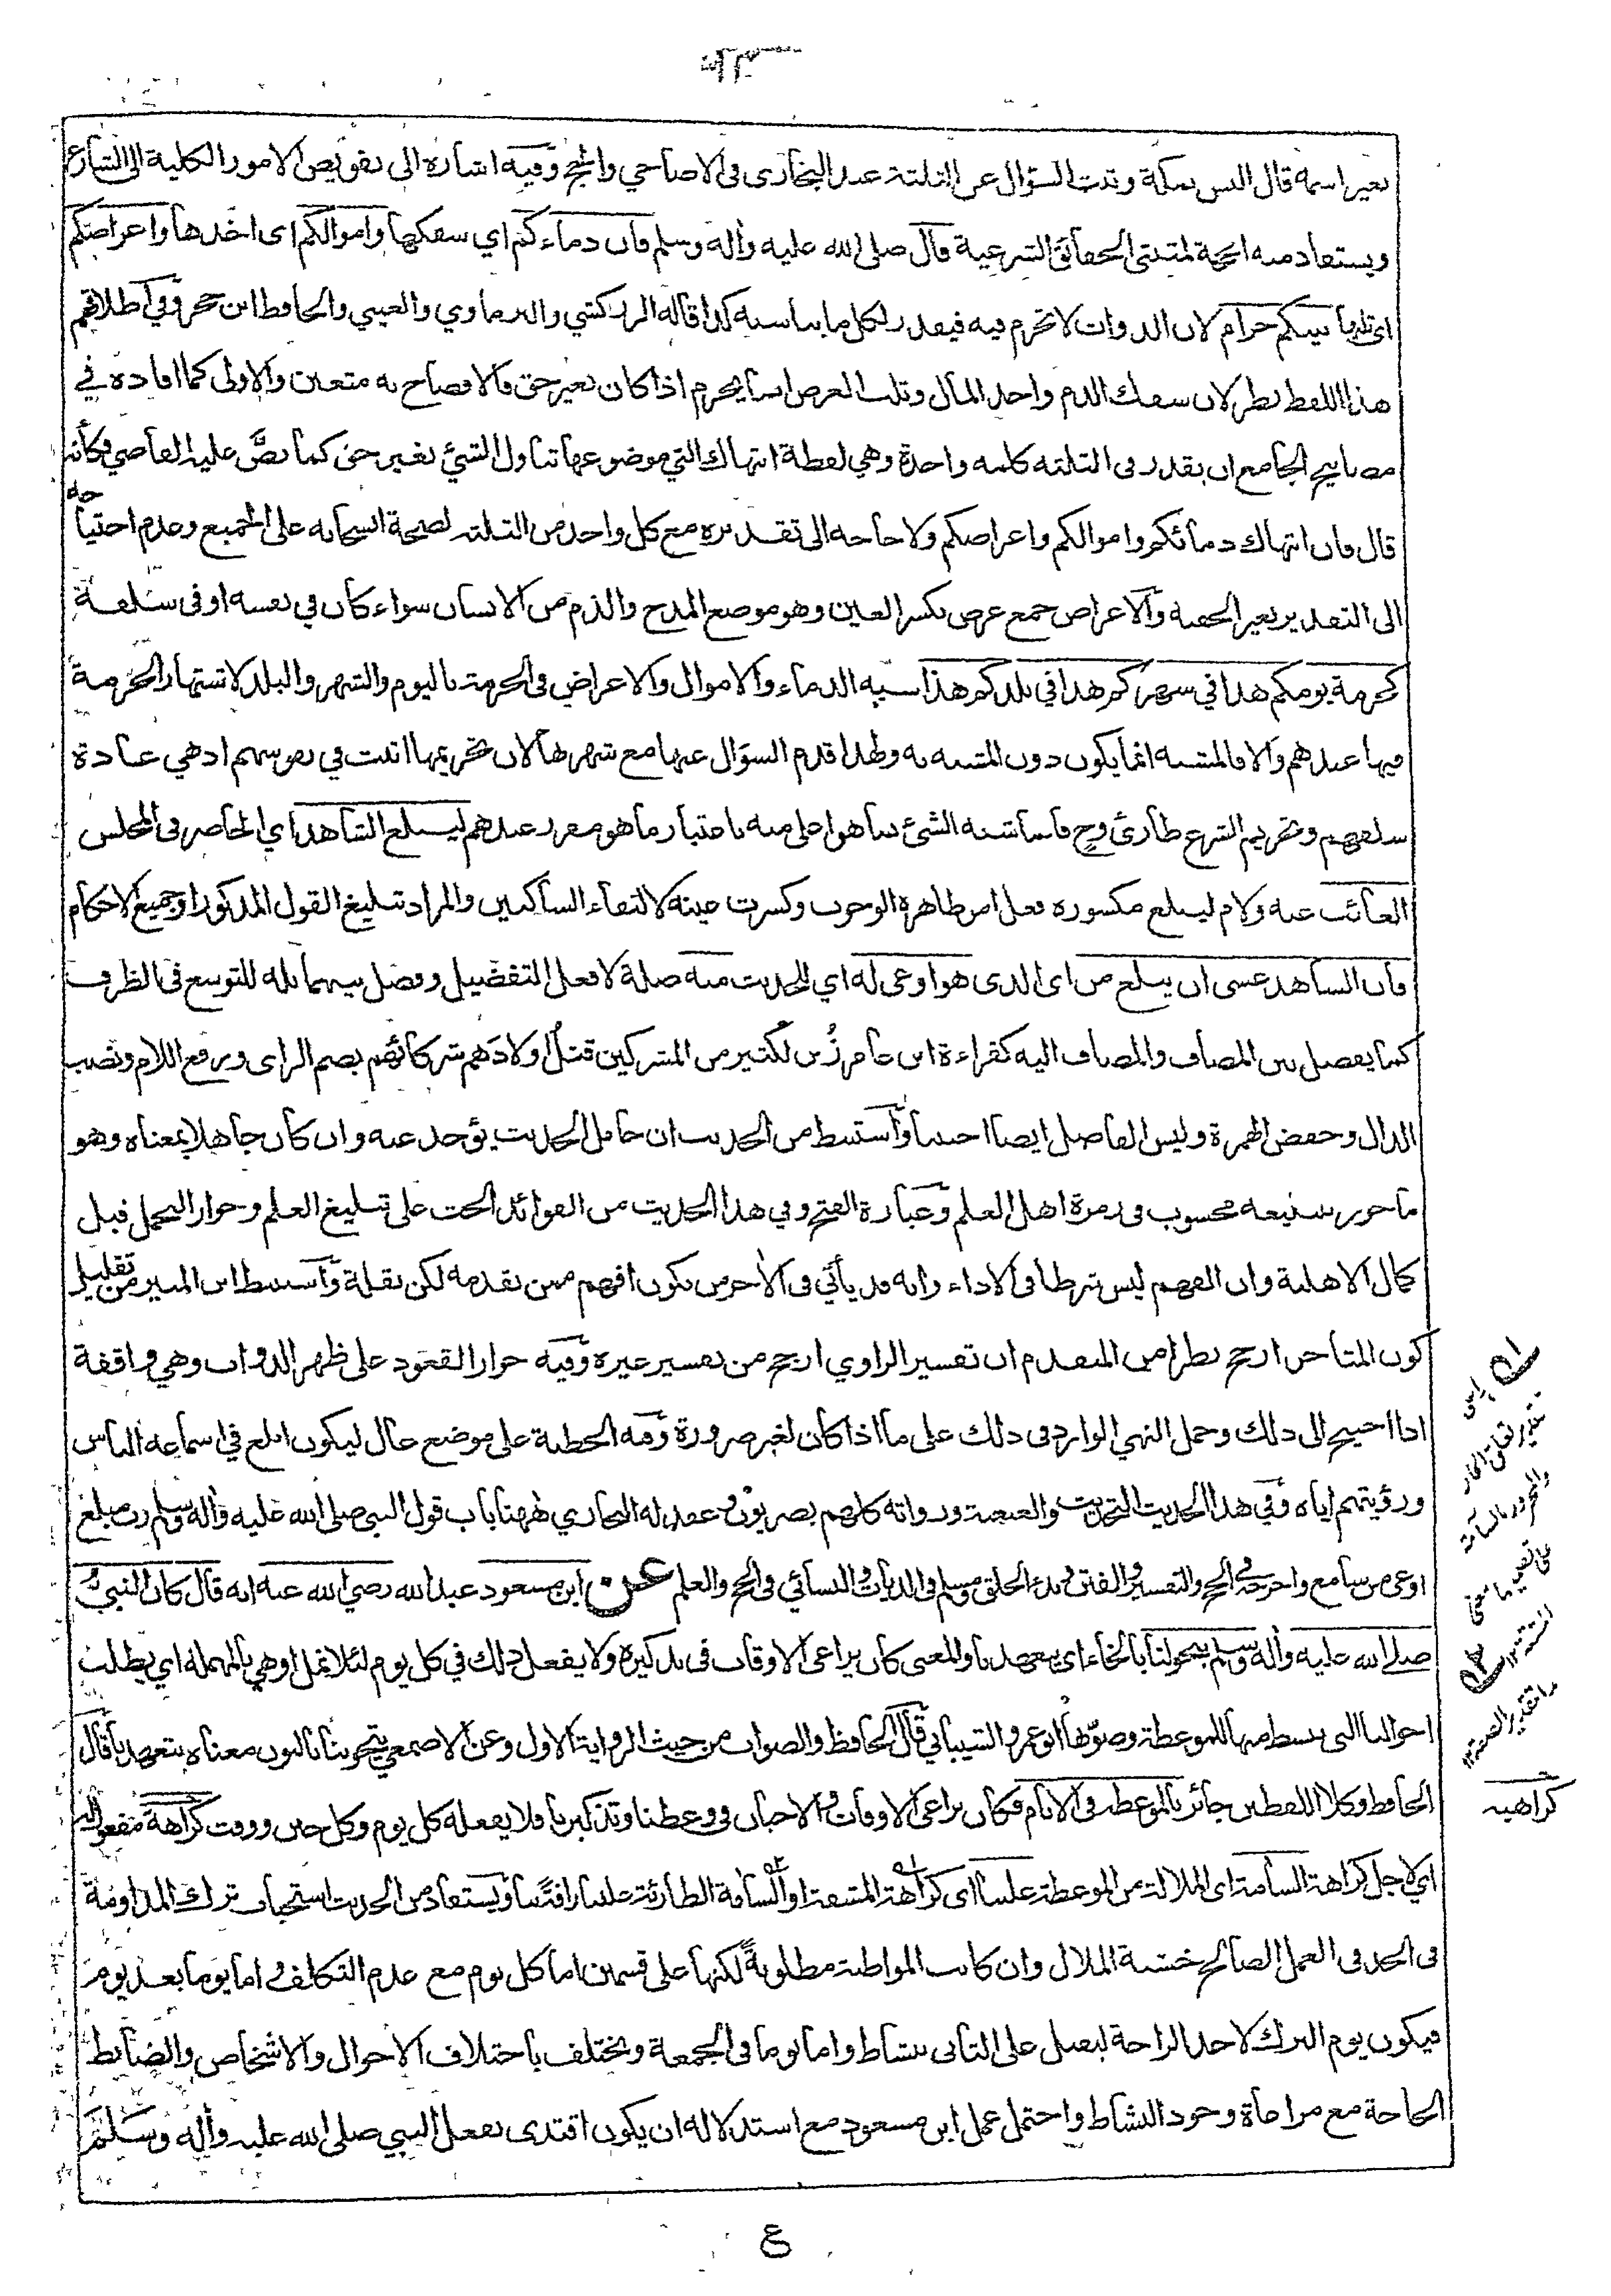 ٩٣
بغير اسمه قال اليس بمكة وثبت السؤال عن الثلثة عند البخاري في الاضاحي والحج وفيه اشارة الى تفويض الامور الكلية الى الشارع
ويستفاد منه الحجة لمثبتي الحقائق الشرعية قال صلى الله عليه وآله وسلم فان دماءكم اي سفكها واموالكم اى اخذها واعراضكم
اى ثلبها بينكم حرام لان الذوات لا تحرم فيه فيقدر لكل ما يناسبه كذا قاله الزركشي والبرماوي والعيني والحافظ ابن حجر وفي اطلاقهم
هذا اللفظ نظر لان سفك الدم واخذ المال وثلب العرض انما يحرم اذا كان بغير حق فالافصاح به متعين والاولى كما افاده في
مصابيح الجامع ان يقدر في الثلثة كلمة واحدة وهي لفظة انتهاك التي موضوعها تناول الشيء بغير حق كما نصَّ عليه القاضي فكأنه
قال فان انتهاك دمائكم واموالكم واعراضكم ولا حاجة الى تقديره مع كل واحد من الثلثة لصحة انسحابه على الجميع وعدم احتياجه
الى التقدير بغير الحقية والاعراض جمع عرض بكسر العين وهو موضع المدح والذم من الانسان سواء كان في نفسه او في سلفه
كحرمة يومكم هذا في شهركم هذا في بلدكم هذا شبه الدماء والاموال والاعراض في الحرمة باليوم والشهر والبلد لاشتهار الحرمة
فيها عندهم والا فالمشبه انما يكون دون المشبه به ولهذا قدم السؤال عنها مع شهرها لان تحريمها اثبت في نفوسهم اذ هي عادة
سلفهم وتحريم الشرع طارئ وح فانما شبه الشئ بما هو اعلى منه باعتبار ما هو مقرر عندهم ليبلغ الشاهد اي الحاضر في المجلس
الغائب عنه ولام ليبلغ مكسورة فعل امر ظاهرة الوجوب وكسرت غينه لالتقاء الساكنين والمراد تبليغ القول المذكور او جميع الاحكام
فان الشاهد عسى ان يبلغ من اى الذى هو اوعى له اي للحديث منه صلة لافعل التفضيل وفصل بينهما بله للتوسع في الظرف
كما يفصل بين المضاف والمضاف اليه كقراءة ابن عامر زُين لكثير من المشركين قتلُ اولادَهم شركائهم بضم الزاى ورفع اللام ونصب
الدال وخفض الهمزة وليس الفاصل ايضا اجنبيا واستنبط من الحديث ان حامل الحديث يؤخذ عنه وان كان جاهلا بمعناه وهو
ماجور بتبليغه محسوب في زمرة اهل العلم وعبارة الفتح وفي هذا الحديث من الفوائد الحث على تبليغ العلم وجواز التحمل قبل
كمال الاهلية وان الفهم ليس شرطا في الاداء وانه قد يأتي في الآخر من يكون افهم ممن تقدمه لكن بقلة واستنبط ابن المنير من تعليل
كون المتاخر ارجح نظرا من المتقدم ان تفسير الراوي ارجح من تفسير غيره وفيه جواز القعود على ظهر الدواب وهي واقفة
اذا احتيج الى ذلك وحمل النهي الوارد في ذلك على ما اذا كان لغير ضرورة وفيه الخطبة على موضع عال ليكون ابلغ في اسماعه الناس
ورؤيتهم اياه وفي هذا الحديث التحديث والعنعنة ورواته كلهم بصريون وعقد له البخاري ههنا باب قول النبي صلى الله عليه وآله وسلم رب مبلغ
اوعى من سامع واخرجه في الحج والتفسير والفتن وبدء الخلق ومسلم في الديات والنسائي في الحج والعلم عن ابن مسعود عبد الله رضي الله عنه انه قال كان النبي
صلى الله عليه وآله وسلم يتخولنا بالخاء اي يتعهدنا والمعنى كان يراعى الاوقات في تذكيره ولا يفعل ذلك في كل يوم لئلا نمل او هي بالمهملة اي يطلب
احوالنا التي ننشط فيها للموعظة وصوّبها ابو عمرو الشيباني قال الحافظ والصواب من حيث الرواية الاول وعن الاصمعي يتخوننا بالنون معناه يتعهدنا قال
الحافظ وكلا اللفظين جائز بالموعظة في الايام فكان يراعى الاوقات والاحيان في وعظنا وتذكيرنا ولا يفعله كل يوم وكل حين ووقت كراهة مفعول له
اي لاجل كراهة السآمة اى الملالة من الموعظة علينا اى كراهة المشقة او السآمة الطارئة علينا رافة بنا ويستفاد من الحديث استحباب ترك المداومة
في الجد في العمل الصالح خشية الملال وان كانت المواظبة مطلوبة لكنها على قسمين اما كل يوم مع عدم التكلف واما يوما بعد يوم
فيكون يوم الترك لاجل الراحة ليقبل على الثاني بنشاط واما يوما في الجمعة ويختلف باختلاف الاحوال والاشخاص والضابط
الحاجة مع مراعاة وجود النشاط واحتمل عمل ابن مسعود مع استدلاله ان يكون اقتدى بفعل النبي صلى الله عليه وآله وسلم
كراهية
ع